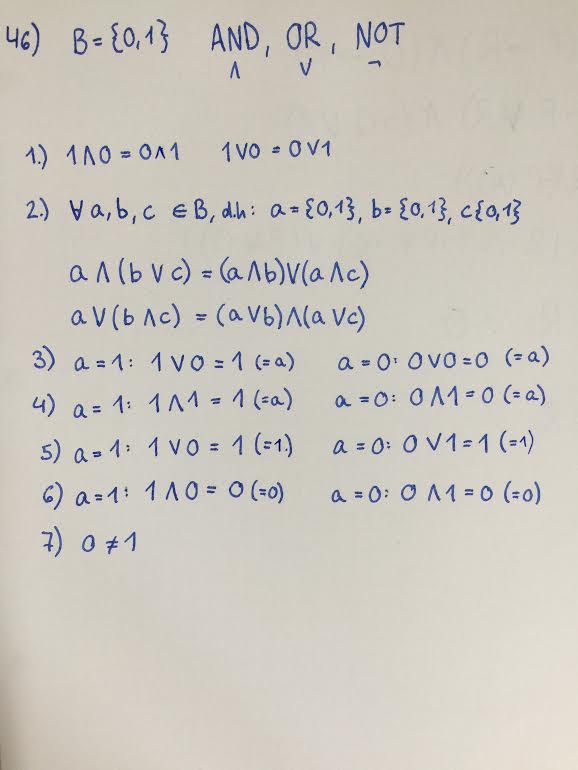 46) B = {0,1} AND, OR, NOT
∧ ∨ ¬
1.) 1∧0 = 0∧1 1∨0 = 0∨1
2.) ∀ a, b, c ∈ B, d.h: a = {0,1}, b = {0,1}, c{0,1}
a ∧ (b ∨ c) = (a ∧ b) ∨ (a ∧ c)
a ∨ (b ∧ c) = (a ∨ b) ∧ (a ∨ c)
3) a = 1: 1 ∨ 0 = 1 (=a) a = 0: 0 ∨ 0 = 0 (=a)
4) a = 1: 1 ∧ 1 = 1 (=a) a = 0: 0 ∧ 1 = 0 (=a)
5) a = 1: 1 ∨ 0 = 1 (=1) a = 0: 0 ∨ 1 = 1 (=1)
6) a = 1: 1 ∧ 0 = 0 (=0) a = 0: 0 ∧ 1 = 0 (=0)
7) 0 ≠ 1